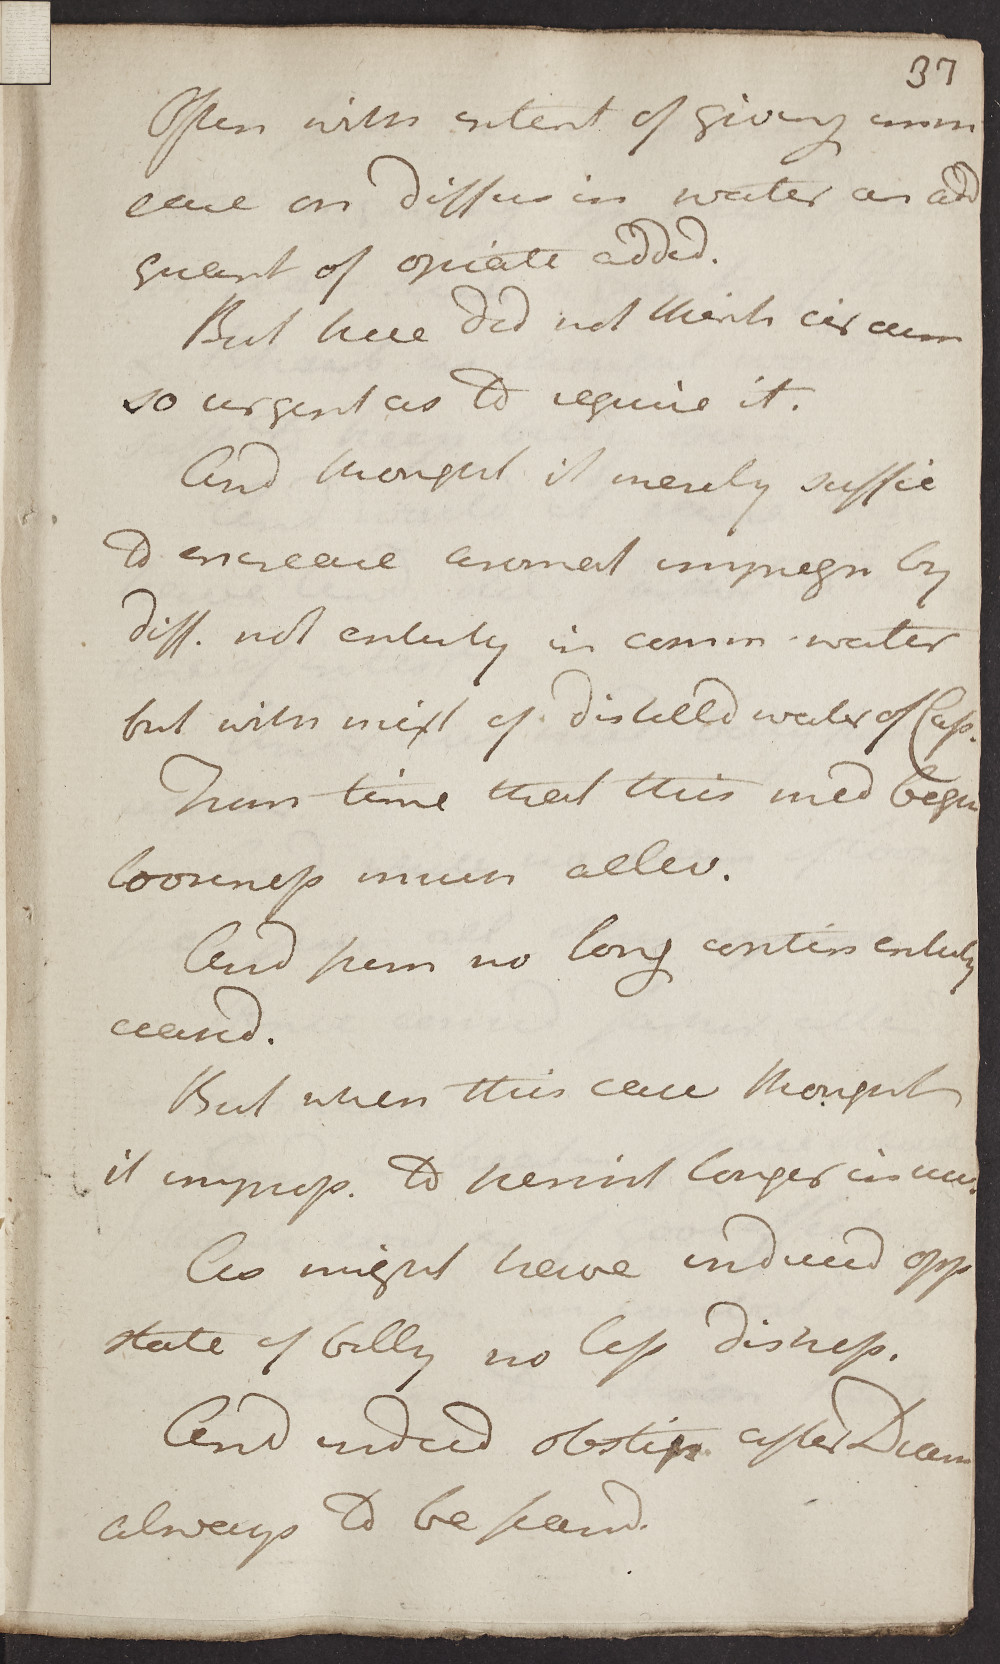 37
Often with intent of giving imm
ease on diffus in water an add
quant of opiate added.
But here did not think circum
so urgent as to require it.
And thought it merely suffic
to encrease aromat impregn by
diff. not entirely in comm water
but with mixt of distilled water of Cass.
From time that this med begun
looseness much allev.
And from no long contin entirely
ceased.
But when this case thought
it improp. to persist longer in use.
As might have induced opp
state of belly no less distress.
And indeed obstip after Diarr
always to be feared.